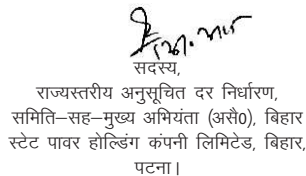 सदस्य,
राज्यस्तरीय अनुसूचित दर निर्धारण,
समिति–सह–मुख्य अभियंता (असै0), बिहार
स्टेट पावर होल्डिंग कंपनी लिमिटेड, बिहार,
पटना।